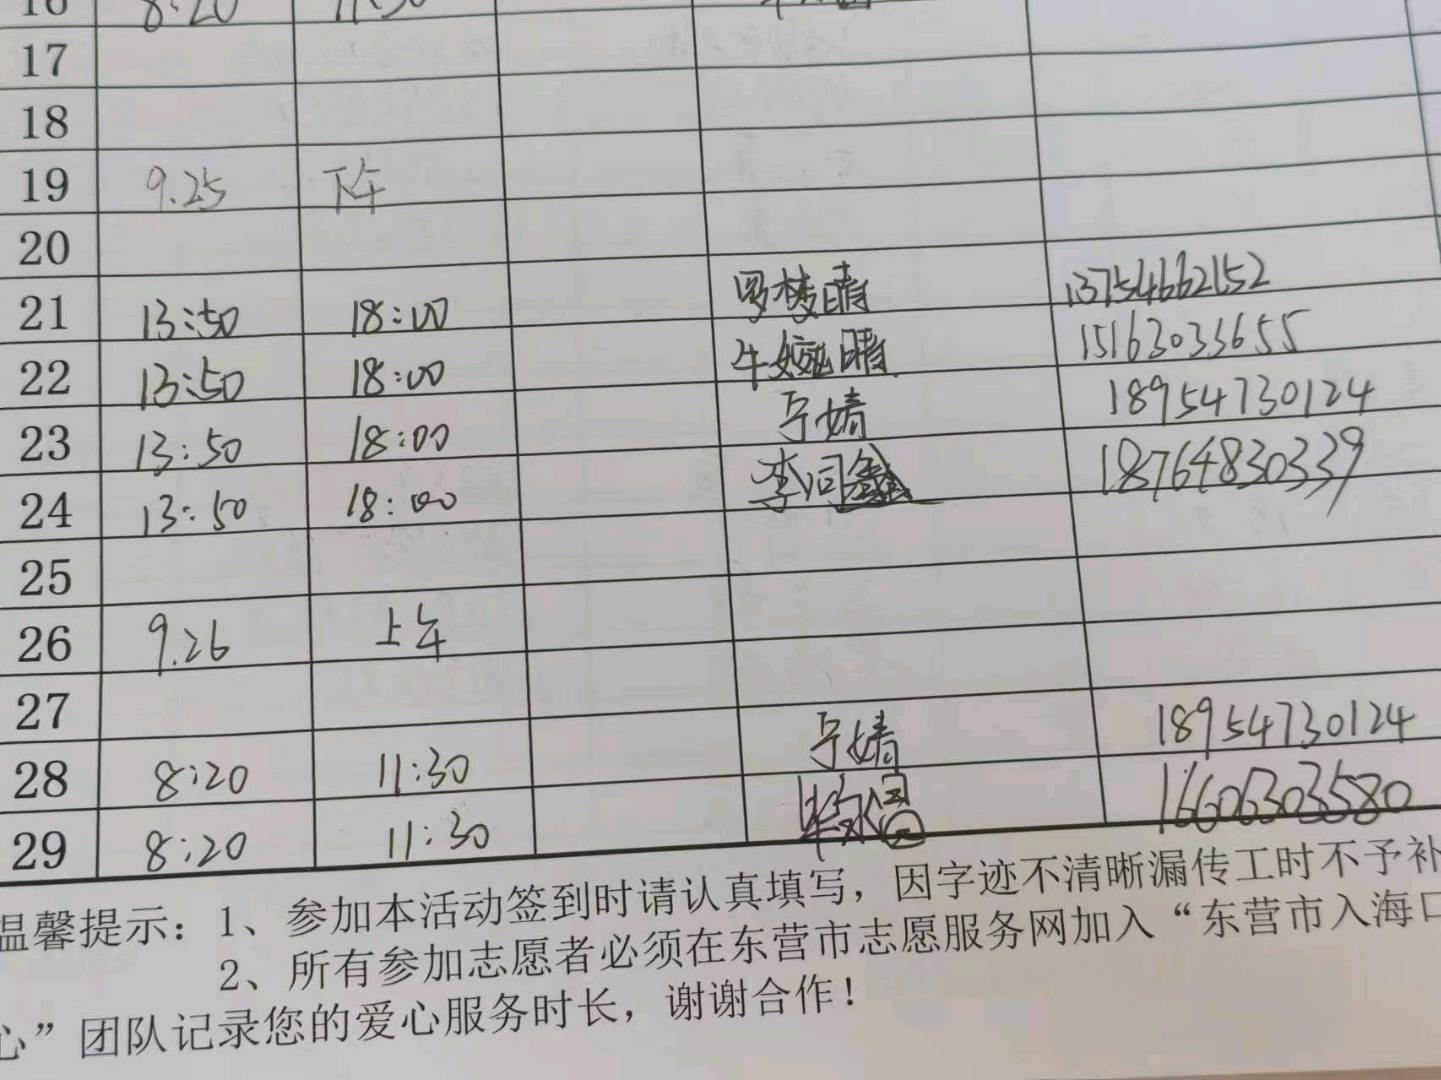 16 8:20 11:30
17
18
19 9.25 下午
20
21 13:50 18:00 罗梦晴 13754662152
22 13:50 18:00 牛婉晴 15163033655
23 13:50 18:00 于婧 18954730124
24 13:50 18:00 李同鑫 18764830339
25
26 9.26 上午
27
28 8:20 11:30 于婧 18954730124
29 8:20 11:30 16606303580
温馨提示：1、参加本活动签到时请认真填写，因字迹不清晰漏传工时不予补
2、所有参加志愿者必须在东营市志愿服务网加入“东营市入海口
心”团队记录您的爱心服务时长，谢谢合作！